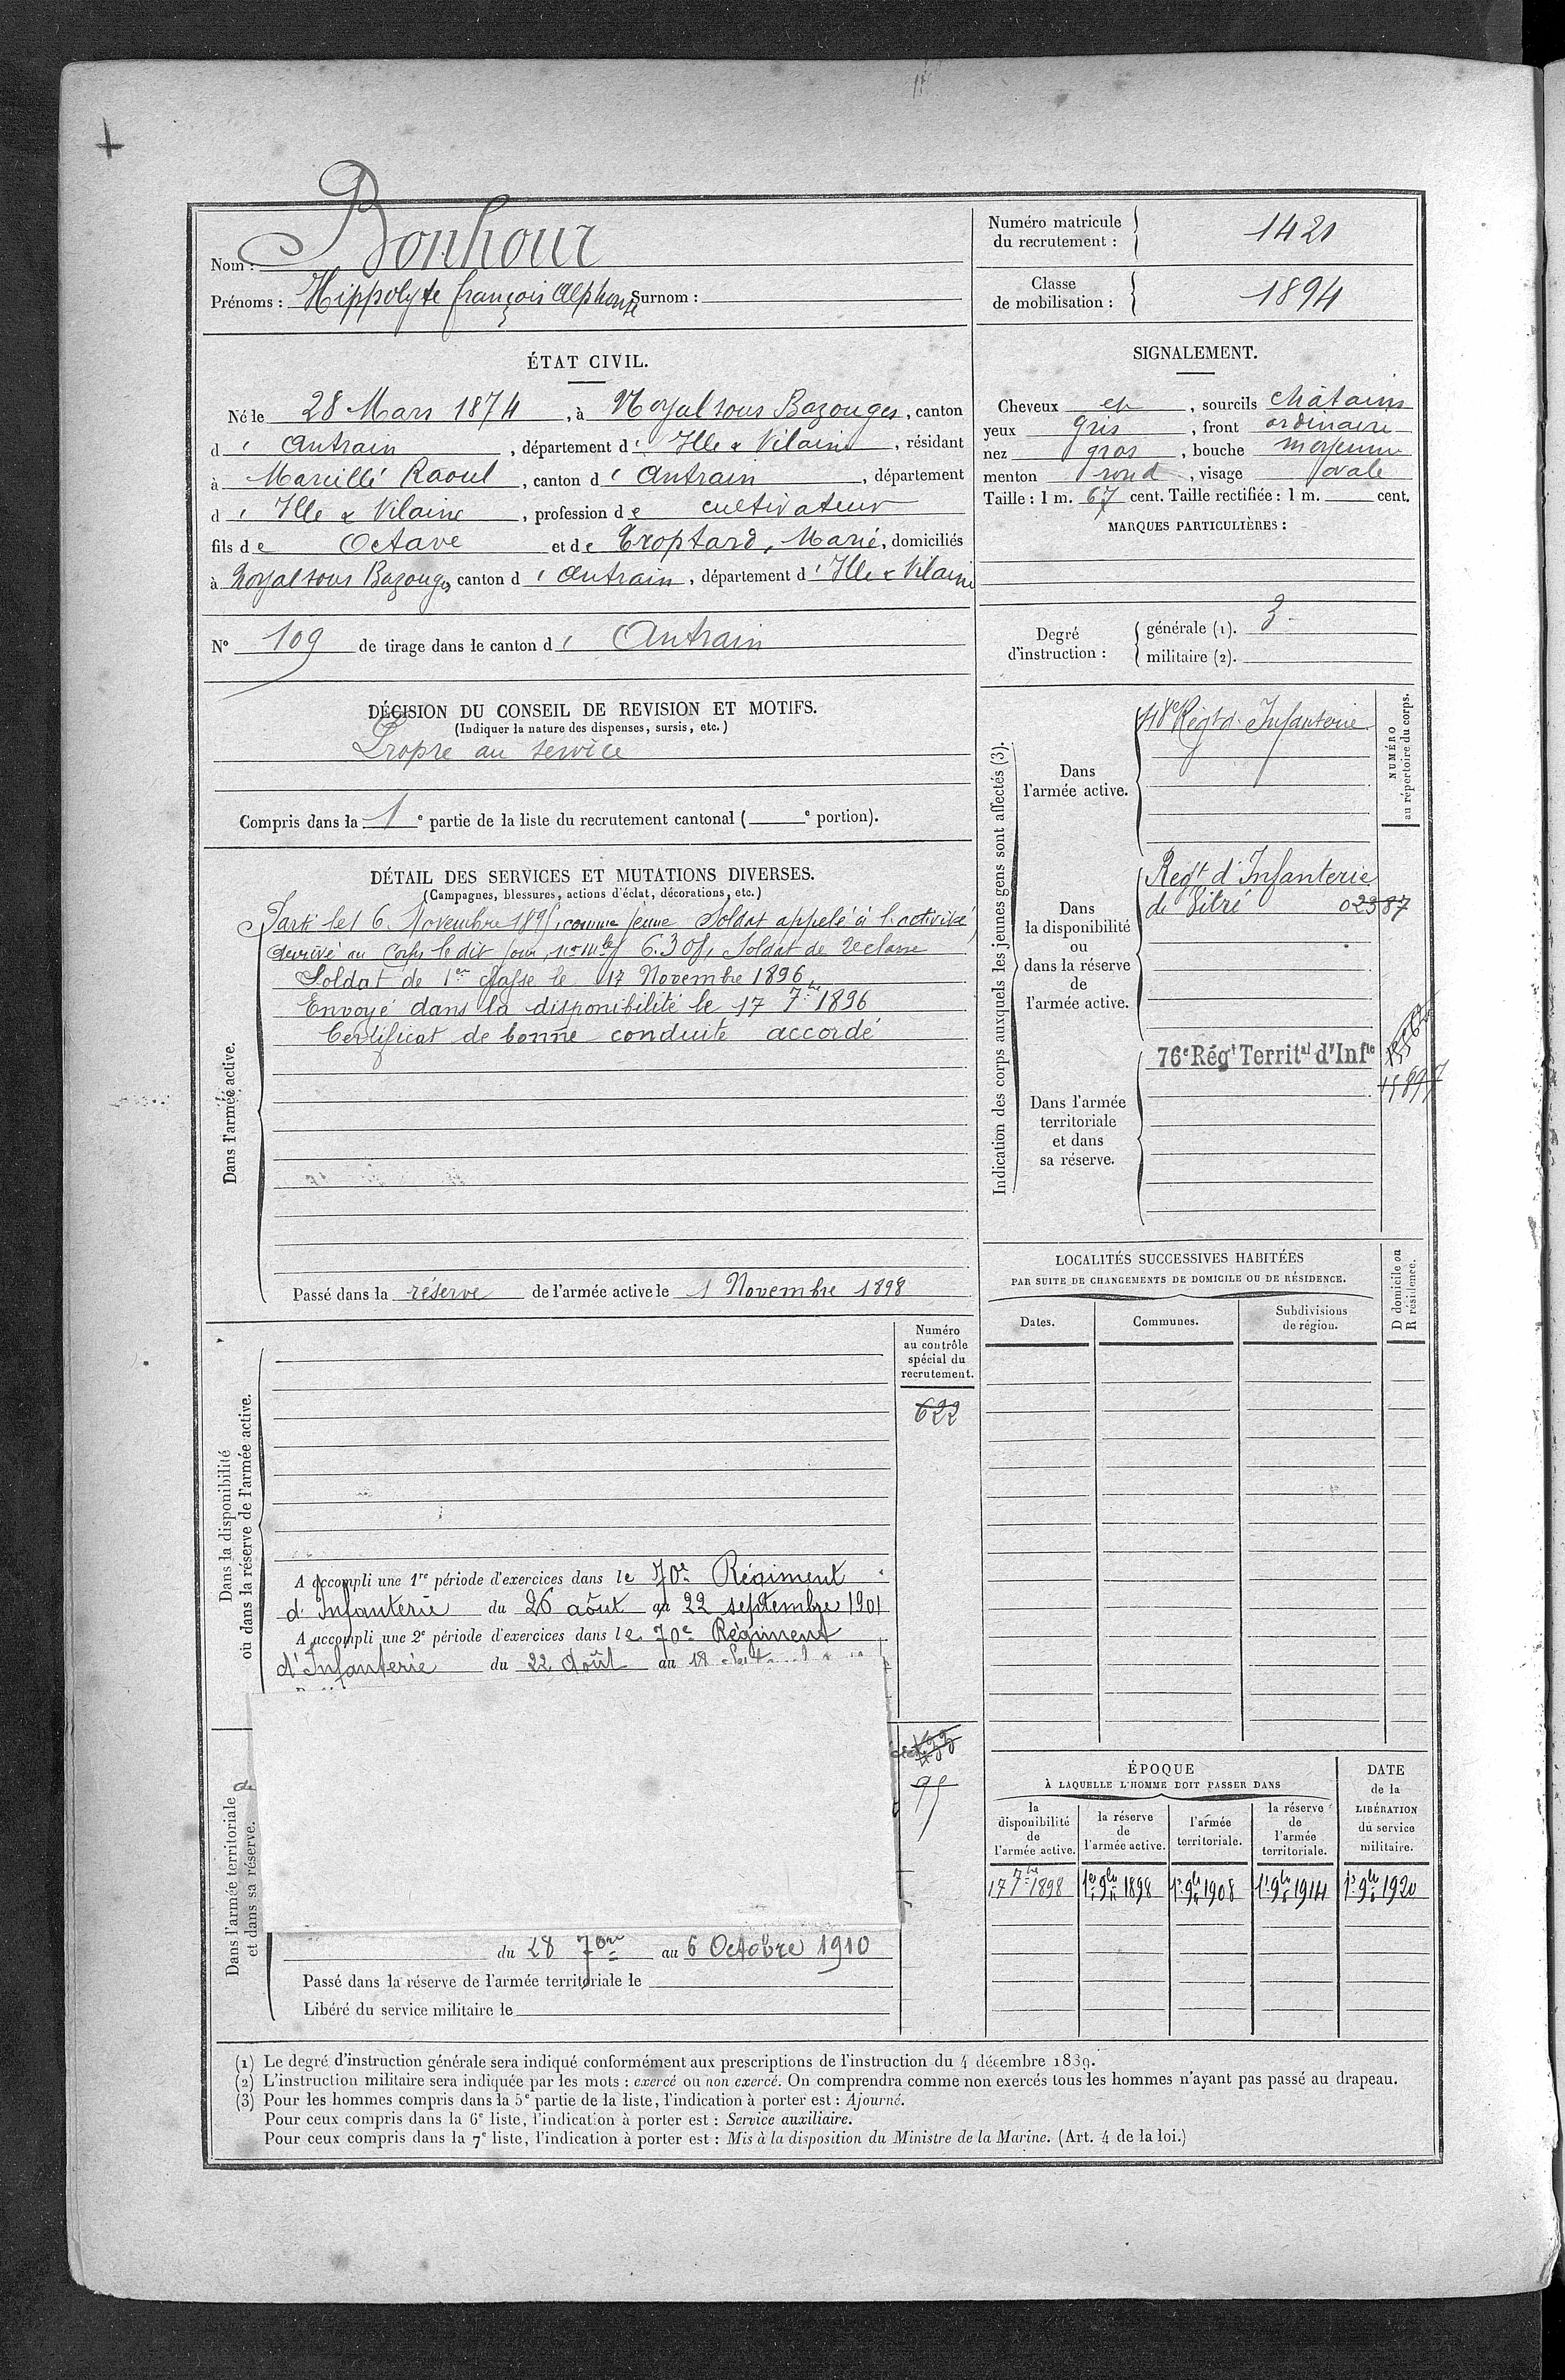 Nom : Bonhour
Prénoms : Hippolyte françois Alphonse Surnom :
Numéro matricule du recrutement : 1421
Classe de mobilisation : 1894
ÉTAT CIVIL.
Né le 28 Mars 1874, à Noyal sous Bazouges, canton
d' Antrain, département d' Ille & Vilaine, résidant
à Marcillé Raoul, canton d' Antrain, département
d' Ille & Vilaine, profession de cultivateur
fils de Octave et de Troptard, Marie, domiciliés
à Noyal sous Bazouges, canton d' Antrain, département d' Ille & Vilaine
N° 109 de tirage dans le canton d' Antrain
SIGNALEMENT.
Cheveux et, sourcils châtains
yeux gris, front ordinaire
nez gros, bouche moyenne
menton rond, visage ovale
Taille : 1 m. 67 cent. Taille rectifiée : 1 m. cent.
MARQUES PARTICULIÈRES :
Degré d'instruction :
générale (1). 3
militaire (2).
DÉCISION DU CONSEIL DE REVISION ET MOTIFS.
(Indiquer la nature des dispenses, sursis, etc.)
Propre au service
Compris dans la 1e partie de la liste du recrutement cantonal ( e portion).
DÉTAIL DES SERVICES ET MUTATIONS DIVERSES.
(Campagnes, blessures, actions d'éclat, décorations, etc.)
Dans l'armée active.
Parti le 16 Novembre 1895, comme jeune Soldat appelé à l'activité
arrivé au Corps le dit jour, 6.305, Soldat de 2e classe
Soldat de 1er classe le 17 Novembre 1896
Envoyé dans la disponibilité le 17 7bre 1896
Certificat de bonne conduite accordé
Passé dans la réserve de l'armée active le 1 Novembre 1898
Indication des corps auxquels les jeunes gens sont affectés (3).
NUMÉRO au répertoire du corps.
Dans
l'armée active.
48e Régt d' Infanterie
Dans
la disponibilité
ou
dans la réserve
de
l'armée active.
Regt d'Infanterie
de Vitré 02387
Dans l'armée
territoriale
et dans
sa réserve.
76e Régt Territal d'Infie
LOCALITÉS SUCCESSIVES HABITÉES
PAR SUITE DE CHANGEMENTS DE DOMICILE OU DE RÉSIDENCE.
Dates.
Communes.
Subdivisions de région.
D domicile ou
R résidence.
Dans la disponibilité
ou dans la réserve de l'armée active.
Numéro
au contrôle
spécial du
recrutement.
622
A accompli une 1re période d'exercices dans le 70e Régiment
d' Infanterie du 26 août au 22 septembre 1901
A accompli une 2e période d'exercices dans le 70e Régiment
d'Infanterie du 22 Août au 18
95
Dans l'armée territoriale
et dans sa réserve.
du 28 7bre au 6 Octobre 1910
Passé dans la réserve de l'armée territoriale le
Libéré du service militaire le
ÉPOQUE
À LAQUELLE L'HOMME DOIT PASSER DANS
la
disponibilité
de
l'armée active.
la réserve
de
l'armée active.
l'armée
territoriale.
la réserve
de
l'armée
territoriale.
DATE
de la
LIBÉRATION
du service
militaire.
17 7bre 1898
1er 9bre 1898
1er 9bre 1908
1er 9bre 1914
1er 9bre 1920
(1) Le degré d'instruction générale sera indiqué conformément aux prescriptions de l'instruction du 4 décembre 1889.
(2) L'instruction militaire sera indiquée par les mots : exercé ou non exercé. On comprendra comme non exercés tous les hommes n'ayant pas passé au drapeau.
(3) Pour les hommes compris dans la 5e partie de la liste, l'indication à porter est : Ajourné.
Pour ceux compris dans la 6e liste, l'indication à porter est : Service auxiliaire.
Pour ceux compris dans la 7e liste, l'indication à porter est : Mis à la disposition du Ministre de la Marine. (Art. 4 de la loi.)